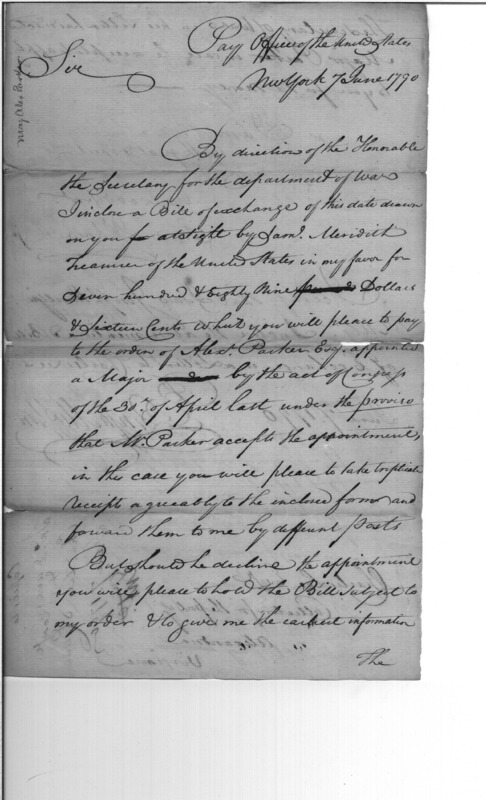 Pay Office of the United States
New York 7 June 1790
Sir
Majr Alex Parker
By direction of the Honorable
the Secretary for the department of War
I inclose a Bill of exchange of this date drawn
on you for at sight by Saml. Meridith
Treasurer of the United States in my favor for
Seven hundred & Eighty Nine pounds Dollars
& Sixteen Cents which you will please to pay
to the order of Alexr. Parker Esqr. appointed
a Major by the act of Congress
of the 30th. of April last, under the proviso
that Mr. Parker accepts the appointment,
in this case you will please to take triplicate
receipts agreeably to the inclosed form and
forward them to me by different Posts
But should he decline the appointment
you will please to hold the Bill subject to
my order & to give me the earliest information
The